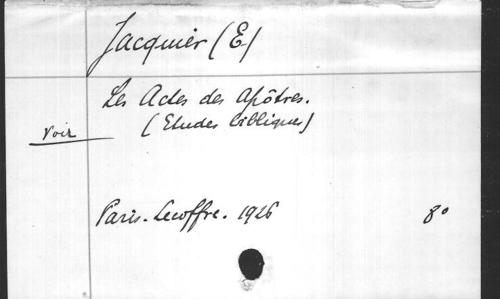 Jacquier (E)
Les Actes des Apôtres.
(Etudes bibliques)
Voir
Paris. Lecoffre. 1926 8°